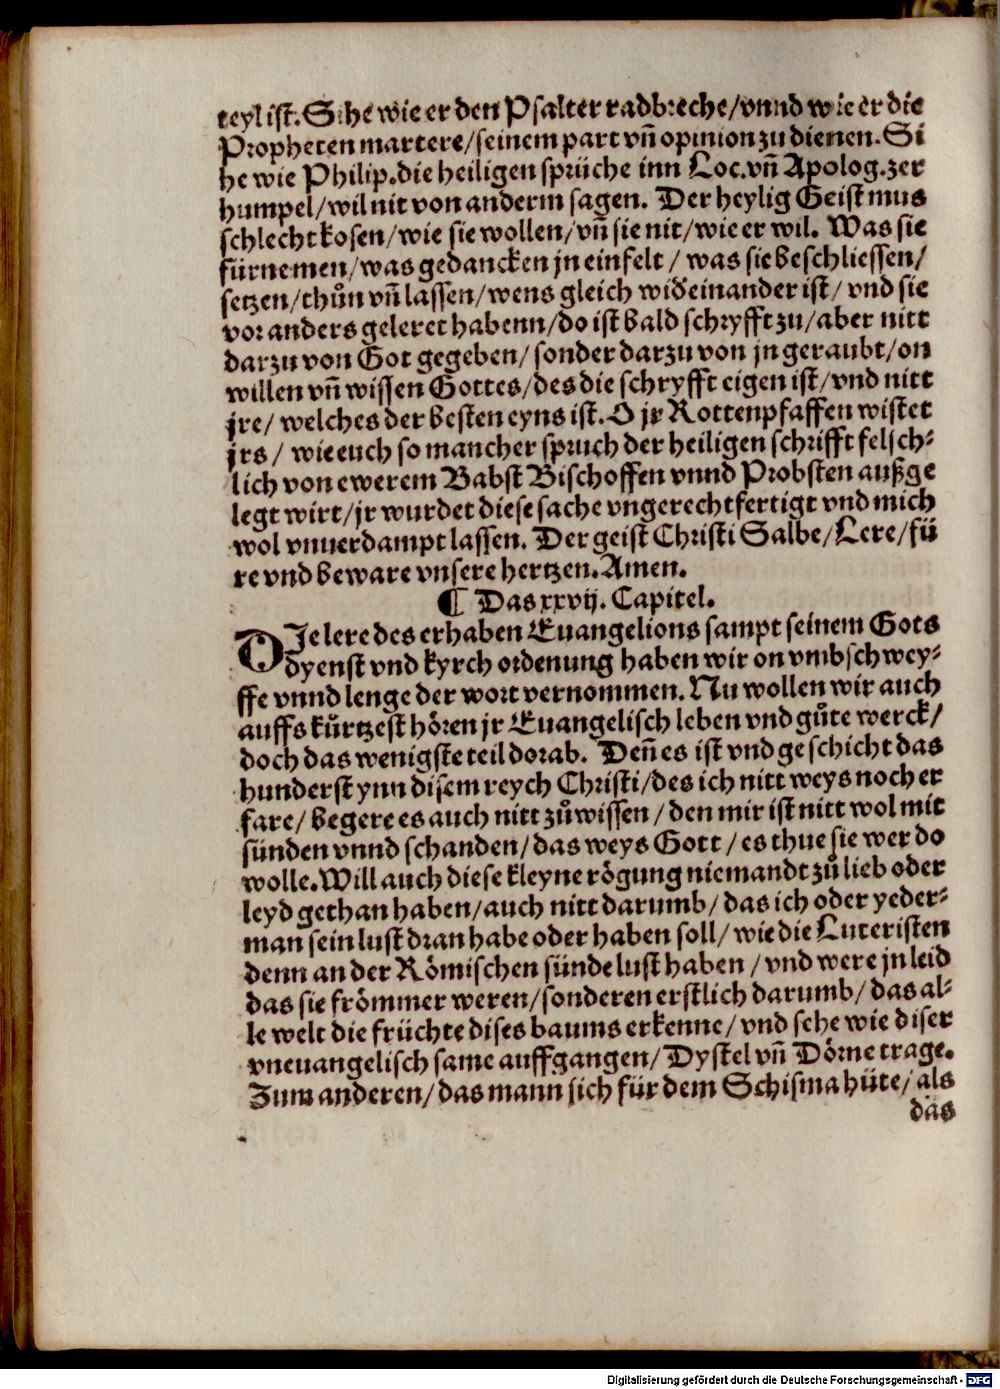 teyl ist. Sihe wie er den Psalter radbreche/vnnd wie er die
Propheten martere/seinem part vn̄ opinion zu dienen. Si
he wie Philip. die heiligen sprüche inn Loc. vn̄ Apolog. zer
humpel/wil nit von anderm sagen. Der heylig Geist mus
schlecht kosen/wie sie wollen/vn̄ sie nit/wie er wil. Was sie
fürnemen/was gedancken jn einfelt/was sie beschliessen/
setzen/thůn vn̄ lassen/wens gleich wid̕einander ist/vnd sie
vor anders geleret habenn/do ist bald schryfft zu/aber nitt
darzu von Got gegeben/sonder darzu von jn geraubt/on
willen vn̄ wissen Gottes/des die schryfft eigen ist/vnd nitt
jre/welches der besten eyns ist. O jr Rottenpfaffen wistet
jrs/wie euch so mancher spruch der heiligen schrifft felsch⸗
lich von ewerem Babst Bischoffen vnnd Probsten außge
legt wirt/jr wurdet diese sache vngerechtfertigt vnd mich
wol vnuerdampt lassen. Der geist Christi Salbe/Lere/fü
re vnd beware vnsere hertzen. Amen.
¶ Das xxvij. Capitel.
DIe lere des erhaben Euangelions sampt seinem Gots
dyenst vnd kyrch ordenung haben wir on vmbschwey⸗
ffe vnnd lenge der wort vernommen. Nu wollen wir auch
auffs kůrtzest hören jr Euangelisch leben vnd gůte werck/
doch das wenigste teil dorab. Den̄ es ist vnd geschicht das
hunderst ynn disem reych Christi/des ich nitt weys noch er
fare/begere es auch nitt zůwissen/den mir ist nitt wol mit
sünden vnnd schanden/das weys Gott/es thue sie wer do
wolle. Will auch diese kleyne rögung niemandt zů lieb oder
leyd gethan haben/auch nitt darumb/das ich oder yeder⸗
man sein lust dran habe oder haben soll/wie die Luteristen
denn an der Römischen sünde lust haben/vnd were jn leid
das sie frömmer weren/sonderen erstlich darumb/das al⸗
le welt die früchte dises baums erkenne/vnd sehe wie diser
vneuangelisch same auffgangen/Dystel vn̄ Dörne trage.
Zum anderen/das mann sich für dem Schisma hüte/als
das
Digitalisierung gefördert durch die Deutsche Forschungsgemeinschaft - DFG